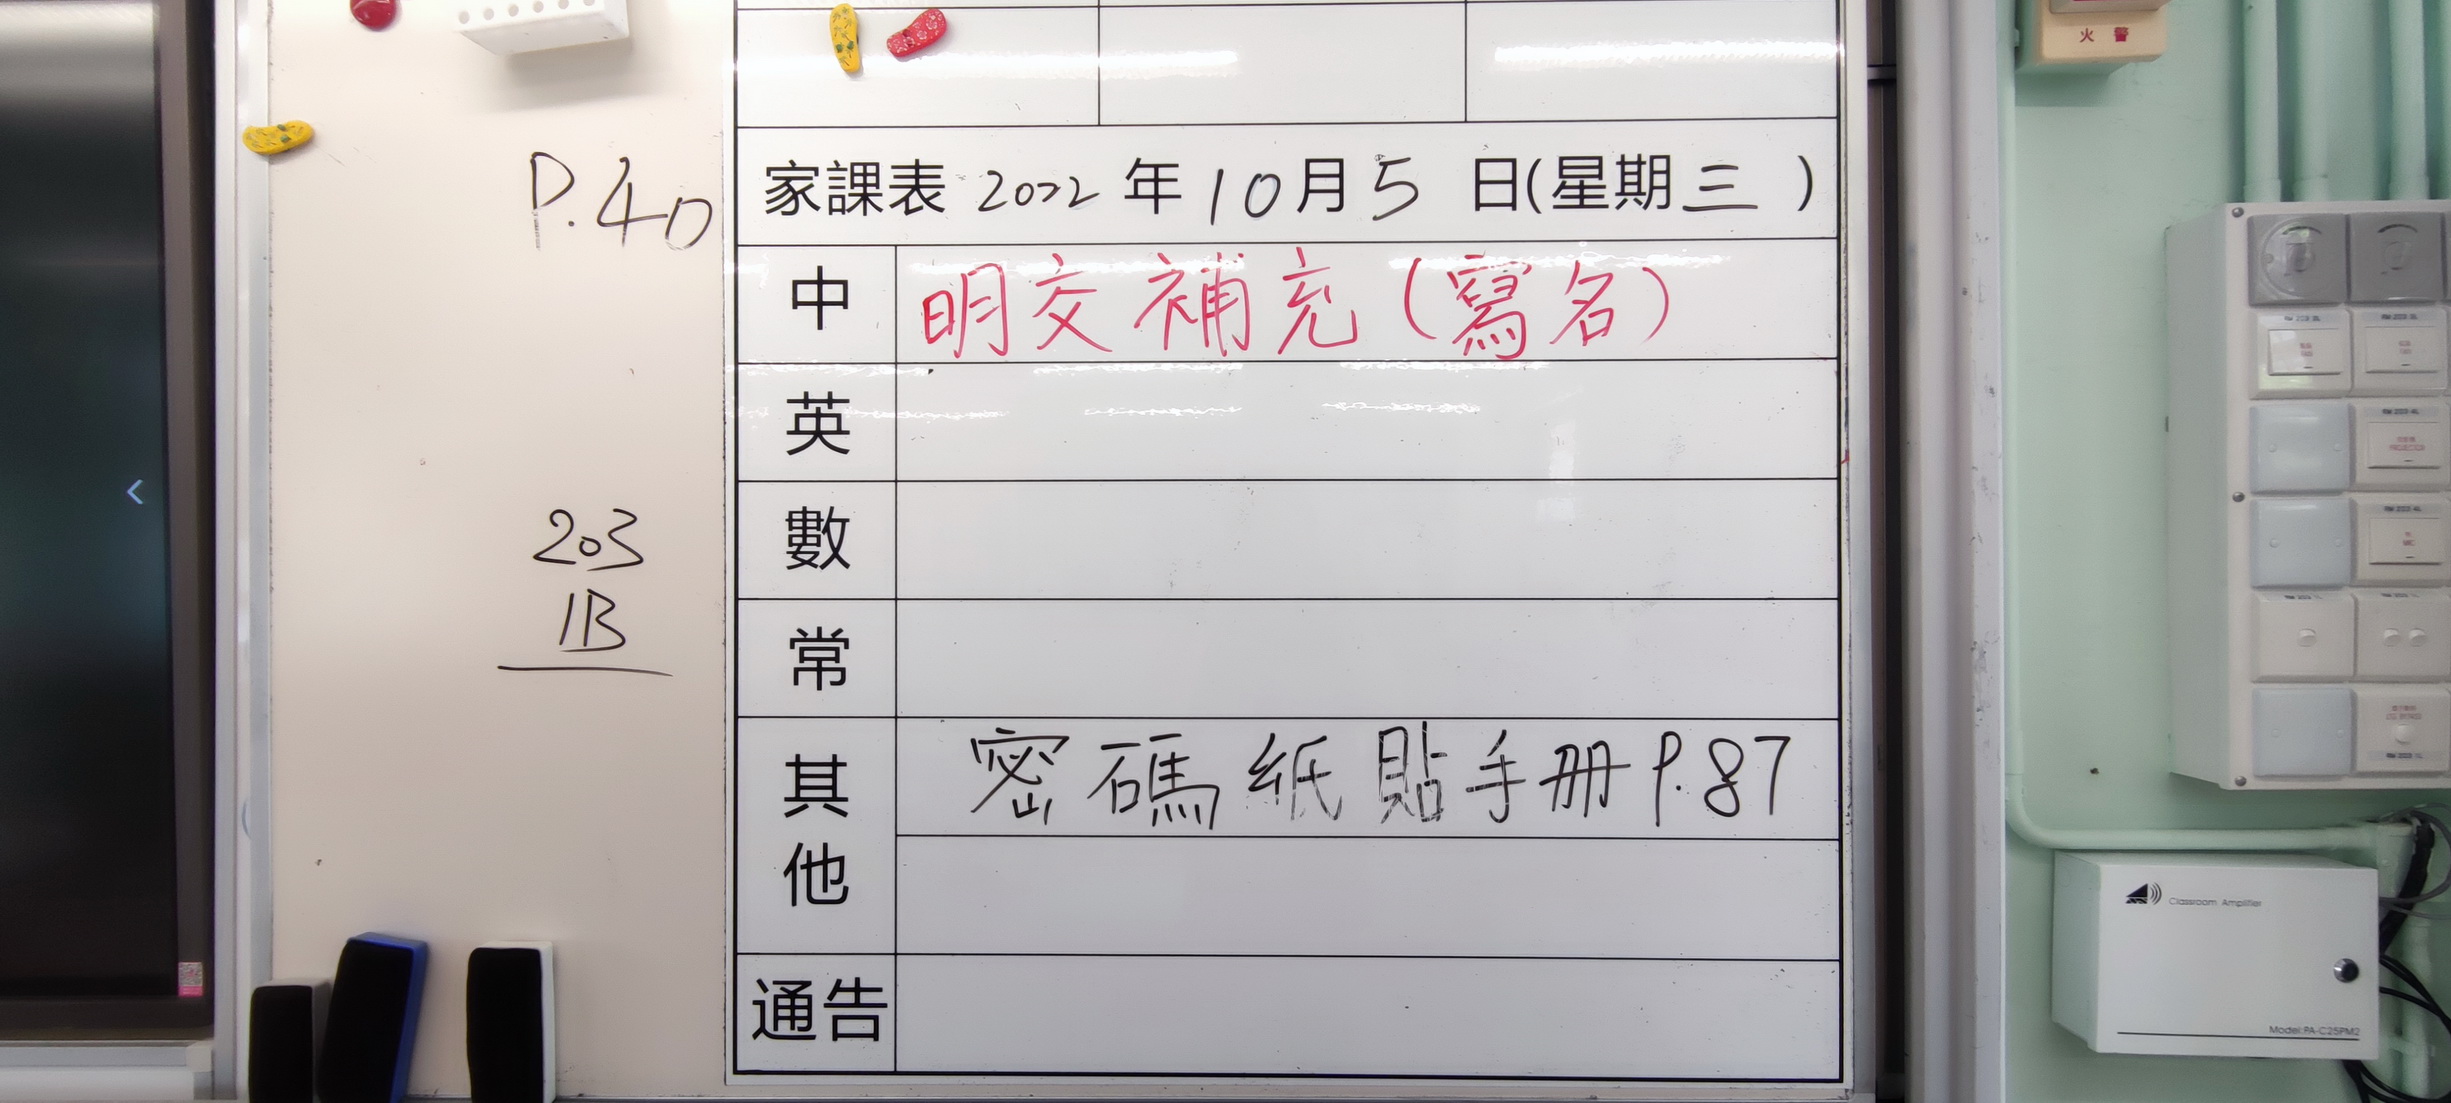 火 警
P.40
家課表 2022 年 10 月 5 日(星期三 )
中 明交補充(寫名)
英
數
203
1B
常
其他 密碼紙貼手册 P.87
通告
Classroom Amplifier
Model:PA-C25PM2